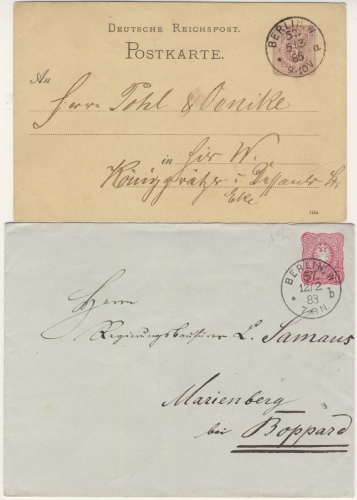 DEUTSCHE REICHSPOST.
POSTKARTE.
BERLIN, W.
57.
5/3
85
9-10V
d
An
Herrn Pohl & Oenike
in hier W.
Königgrätzer u. Dessauer Str
Ecke
BERLIN, W.
57.
12/2
89
7-8N.
b
Herrn
Regierungs L. Samans
Marienberg
bei Boppard